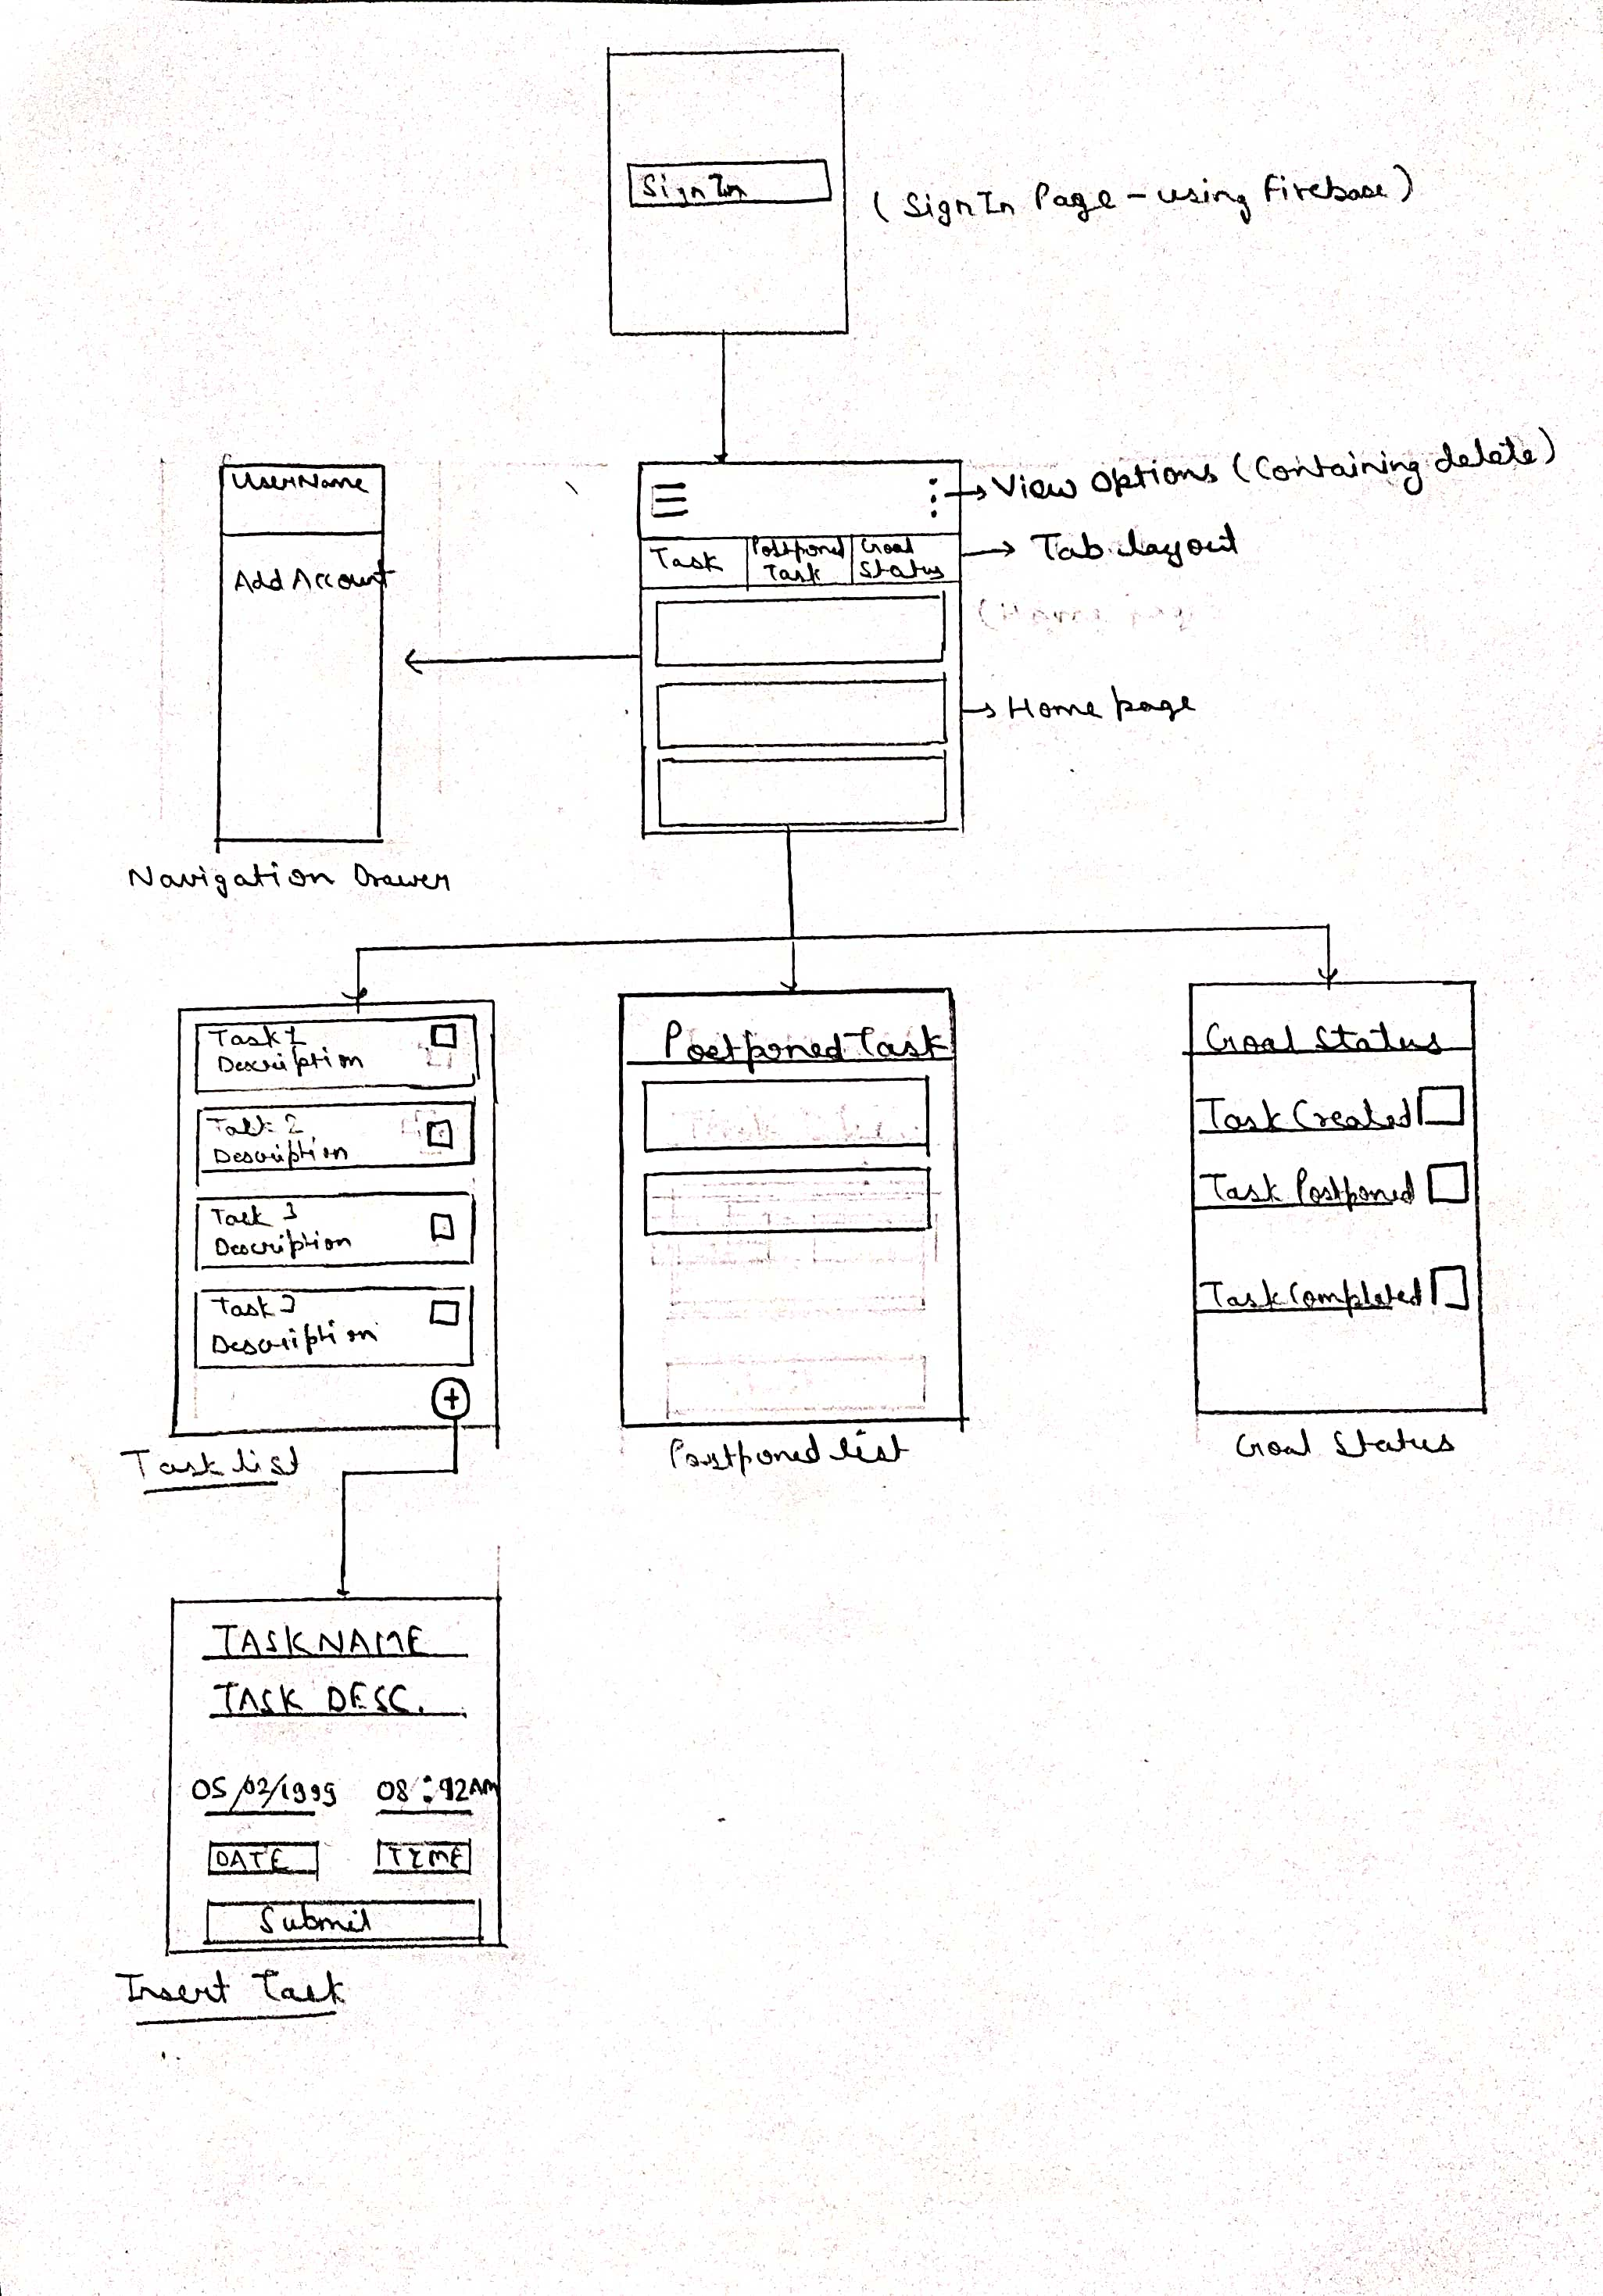 SignIn
(SignIn Page - using Firebase)
UserName
Add Account
Navigation Drawer
View Options (Containing delete)
Task
Postponed
Task
Goal
Status
Tab layout
(Home page
Home page
Task 1
Description
Task 2
Description
Task 3
Description
Task 3
Description
+
Task list
Postponed Task
Postponed list
Goal Status
Task Created
Task Postponed
Task Completed
Goal Status
TASK NAME
TASK DESC.
05/02/1999 08:42AM
DATE TIME
Submit
Insert Task